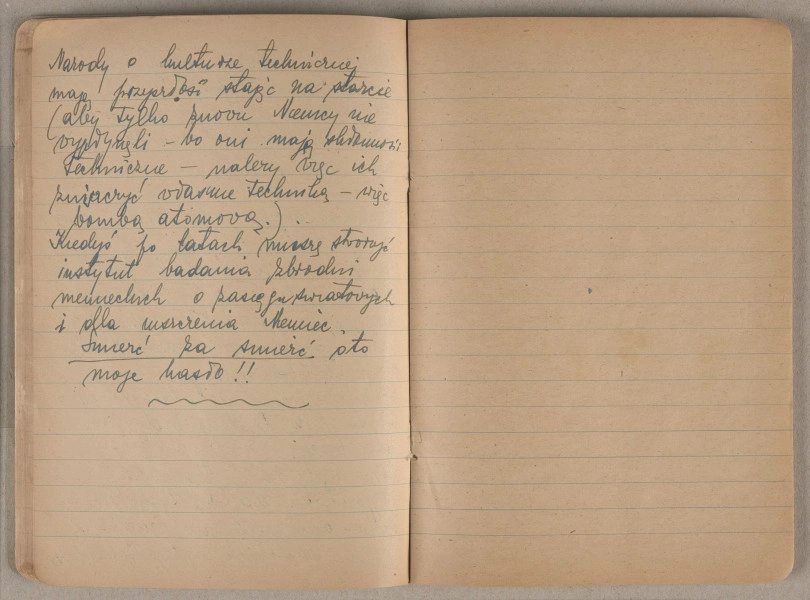 Narody o kulturze technicznej
mają przyszłość stając na starcie
(aby tylko znowu Niemcy nie
wypłynęli – bo oni mają zdolności
techniczne – należy więc ich
zniszczyć własną techniką – więc
bombą atomową.).
Kiedyś po latach muszę stworzyć
instytut badania zbrodni
niemieckich o zasięgu światowych
i dla niszczenia Niemiec.
Śmierć za śmierć oto
moje hasło!!